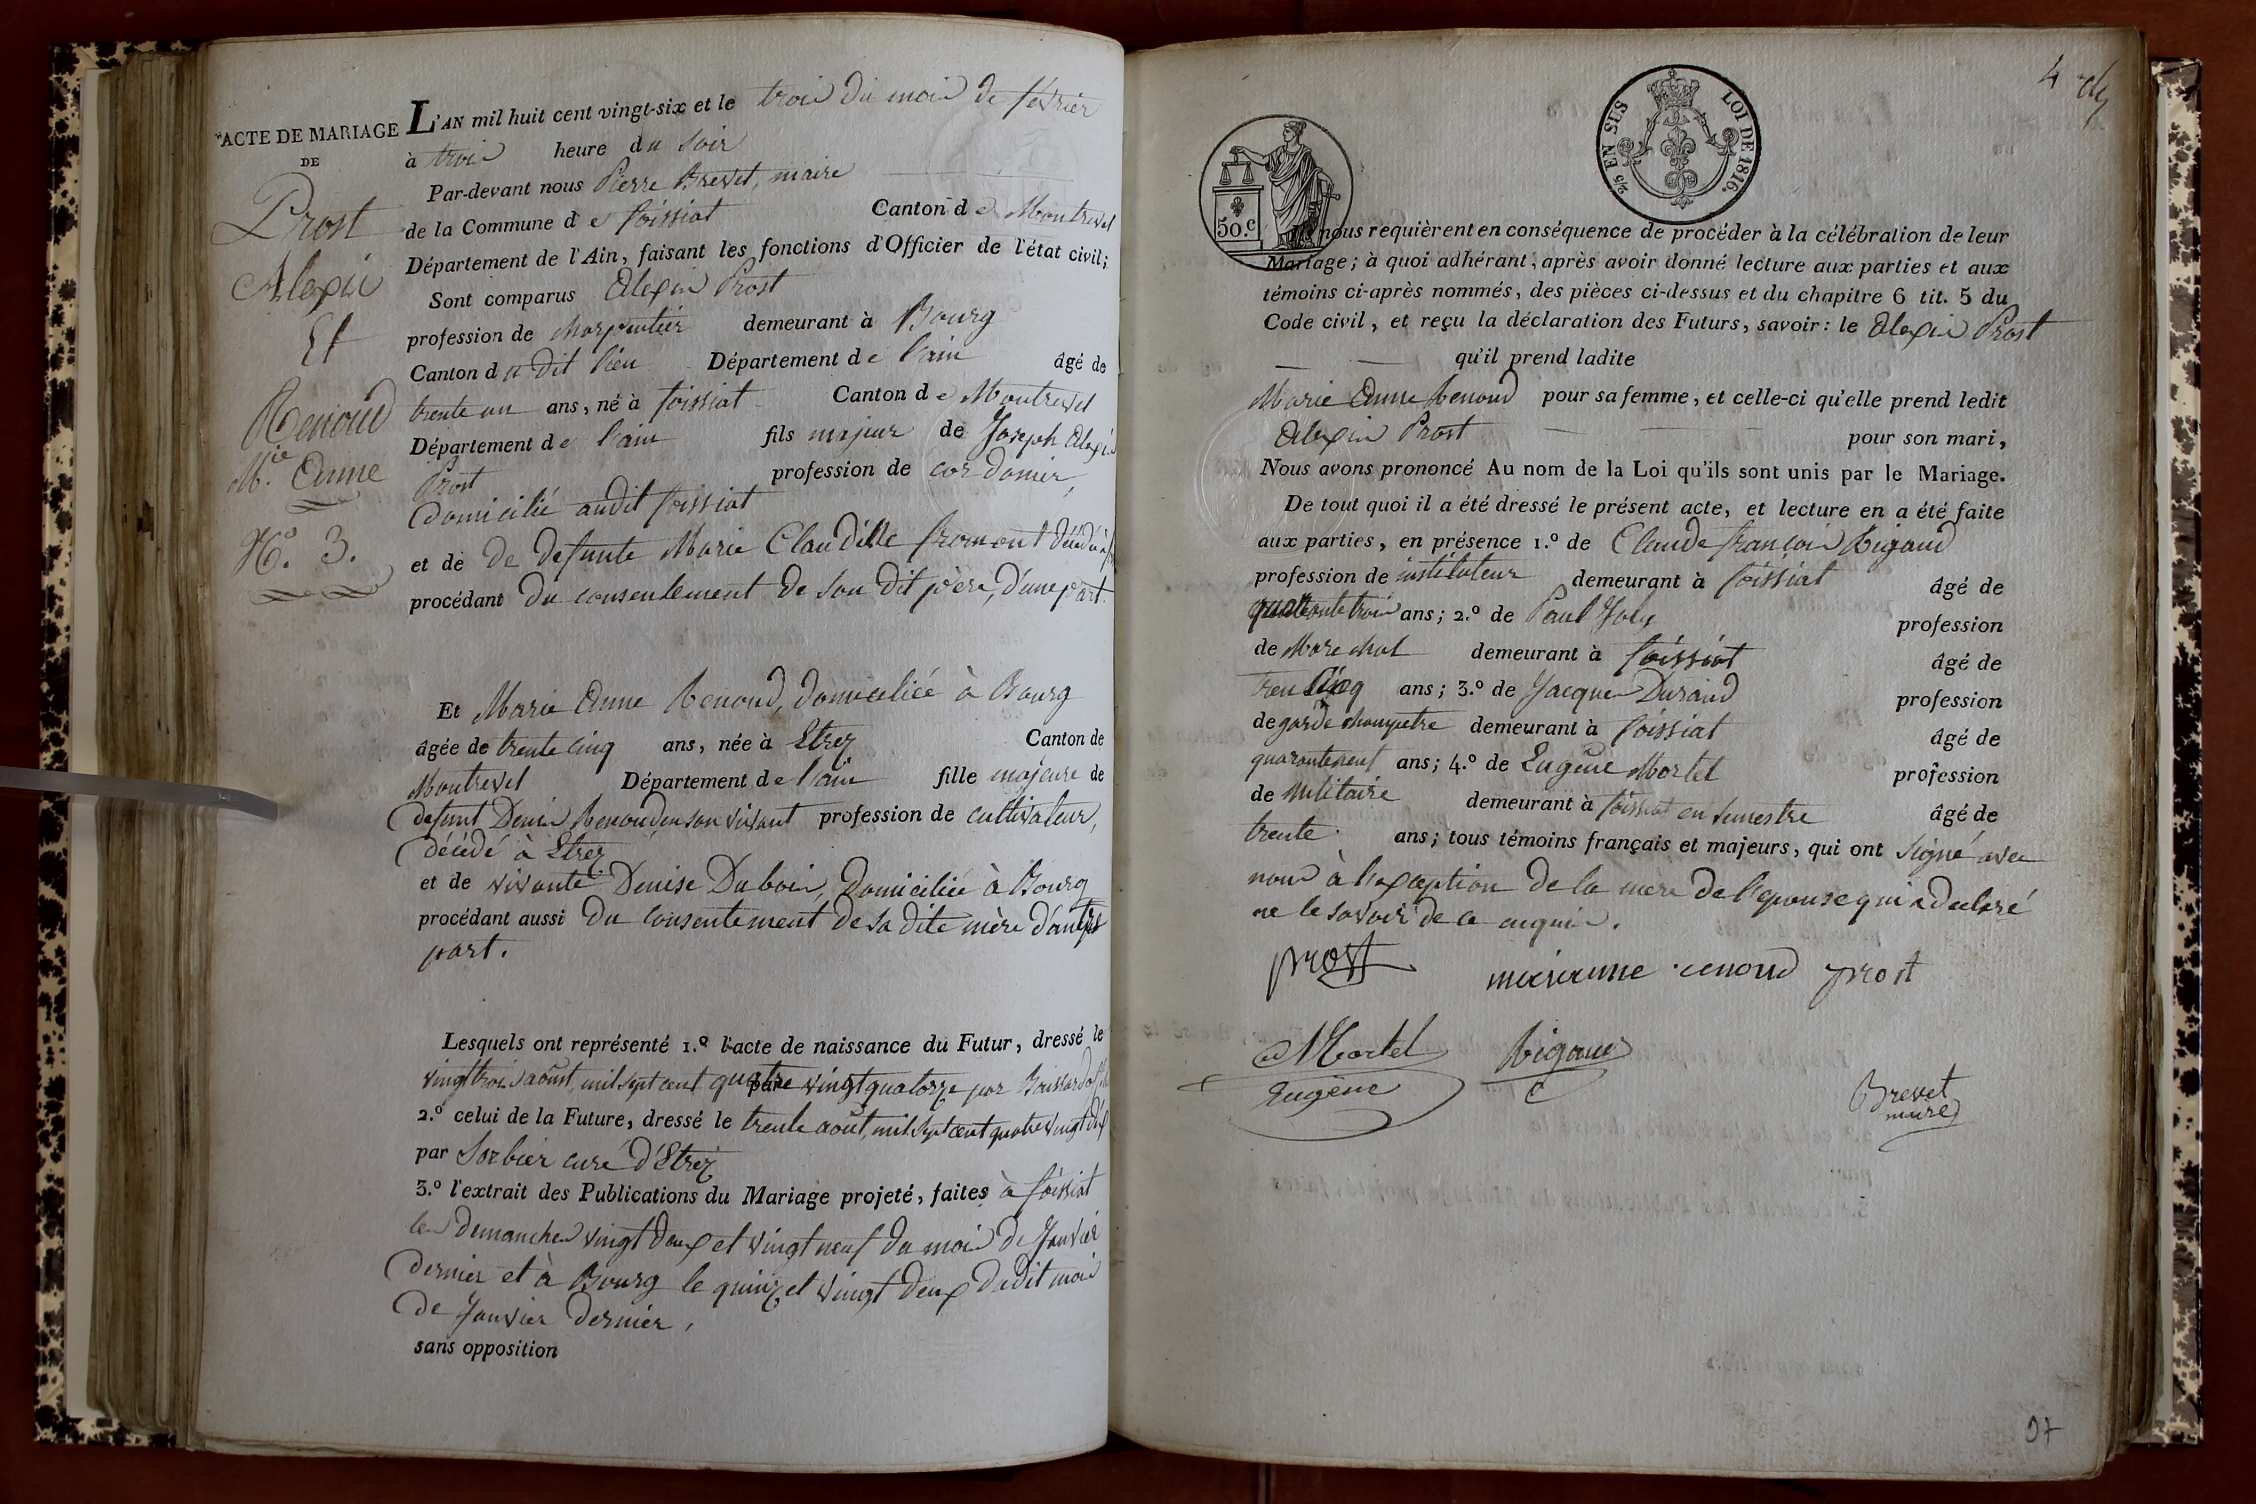 ACTE DE MARIAGE
DE
Prost
Alexis
Et
Renoud
M.ie Anne
N.o 3.
L'AN mil huit cent vingt-six et le trois du mois de février
à trois heure du soir
Par-devant nous Pierre Brevet, maire
de la Commune de foissiat Canton de Montrevel
Département de l'Ain, faisant les fonctions d'Officier de l'état civil;
Sont comparus Alexis Prost
profession de charpentier demeurant à Bourg
Canton du dit lieu Département de l'ain âgé de
trente un ans, né à foissiat Canton de Montrevel
Département de l'ain fils majeur de Joseph Alexis
Prost profession de cordonier,
domicilié audit foissiat
et de de defunte Marie Claudine fromont
procédant du consentement de son dit père, d'une part.
Et Marie Anne Renoud, domiciliée à Bourg
âgée de trente cinq ans, née à Etrez Canton de
Montrevel Département de l'ain fille majeure de
defunt Denis Renoud en son vivant profession de cultivateur,
décédé à Etrez
et de vivante Denise Dubois, domiciliée à Bourg
procédant aussi du consentement de sa dite mère d'autre
part.
Lesquels ont représenté 1.º l'acte de naissance du Futur, dressé le
vingt trois août, mil sept cent quatre vingt quatorze par
2.º celui de la Future, dressé le trente août, mil sept cent quatre vingt dix
par Sorbier curé d'Etrez
3.º l'extrait des Publications du Mariage projeté, faites à foissiat
les dimanches vingt deux et vingt neuf du mois de Janvier
dernier et à Bourg le quinz et vingt deux dudit mois
de Janvier dernier,
sans opposition
4
50.c
5/6 EN SUS LOI DE 1816.
nous requièrent en conséquence de procéder à la célébration de leur
Mariage; à quoi adhérant, après avoir donné lecture aux parties et aux
témoins ci-après nommés, des pièces ci-dessus et du chapitre 6 tit. 5 du
Code civil, et reçu la déclaration des Futurs, savoir: le Alexis Prost
qu'il prend ladite
Marie Anne Renoud pour sa femme, et celle-ci qu'elle prend ledit
Alexis Prost pour son mari,
Nous avons prononcé Au nom de la Loi qu'ils sont unis par le Mariage.
De tout quoi il a été dressé le présent acte, et lecture en a été faite
aux parties, en présence 1.º de Claude françois Rigaud
profession de instituteur demeurant à foissiat âgé de
quarante trois ans; 2.º de Paul Joly profession
de Marechal demeurant à foissiat âgé de
trente cinq ans; 3.º de Jacques Durand profession
de garde champetre demeurant à foissiat âgé de
quarante neuf ans; 4.º de Eugène Mortel profession
de militaire demeurant à foissiat en semestre âgé de
trente ans; tous témoins français et majeurs, qui ont signé avec
nous à l'exception de la mère de l'epouse qui a declaré
ne le savoir de ce enquis.
prost marianne renoud prost
Mortel Rigaud
Eugène
Brevet
maire
97